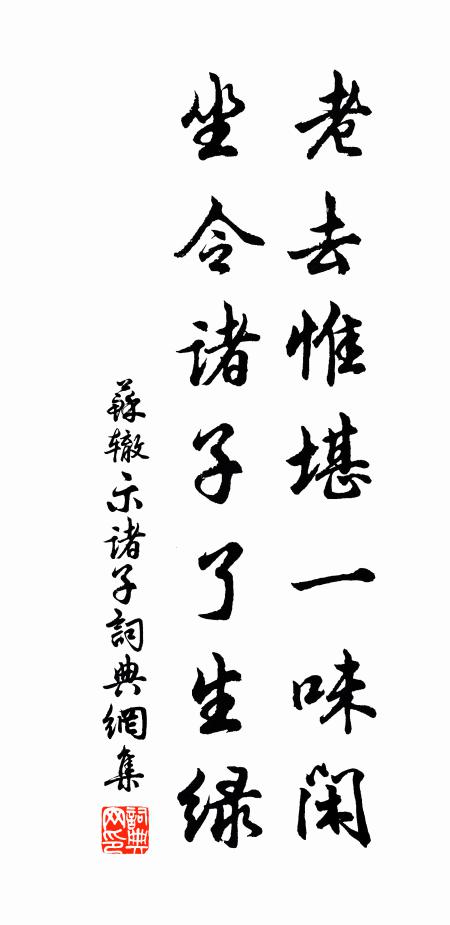 老去惟堪一味闲
坐令诸子了生缘
蘇辙示诸子詞典網集
詞典网印